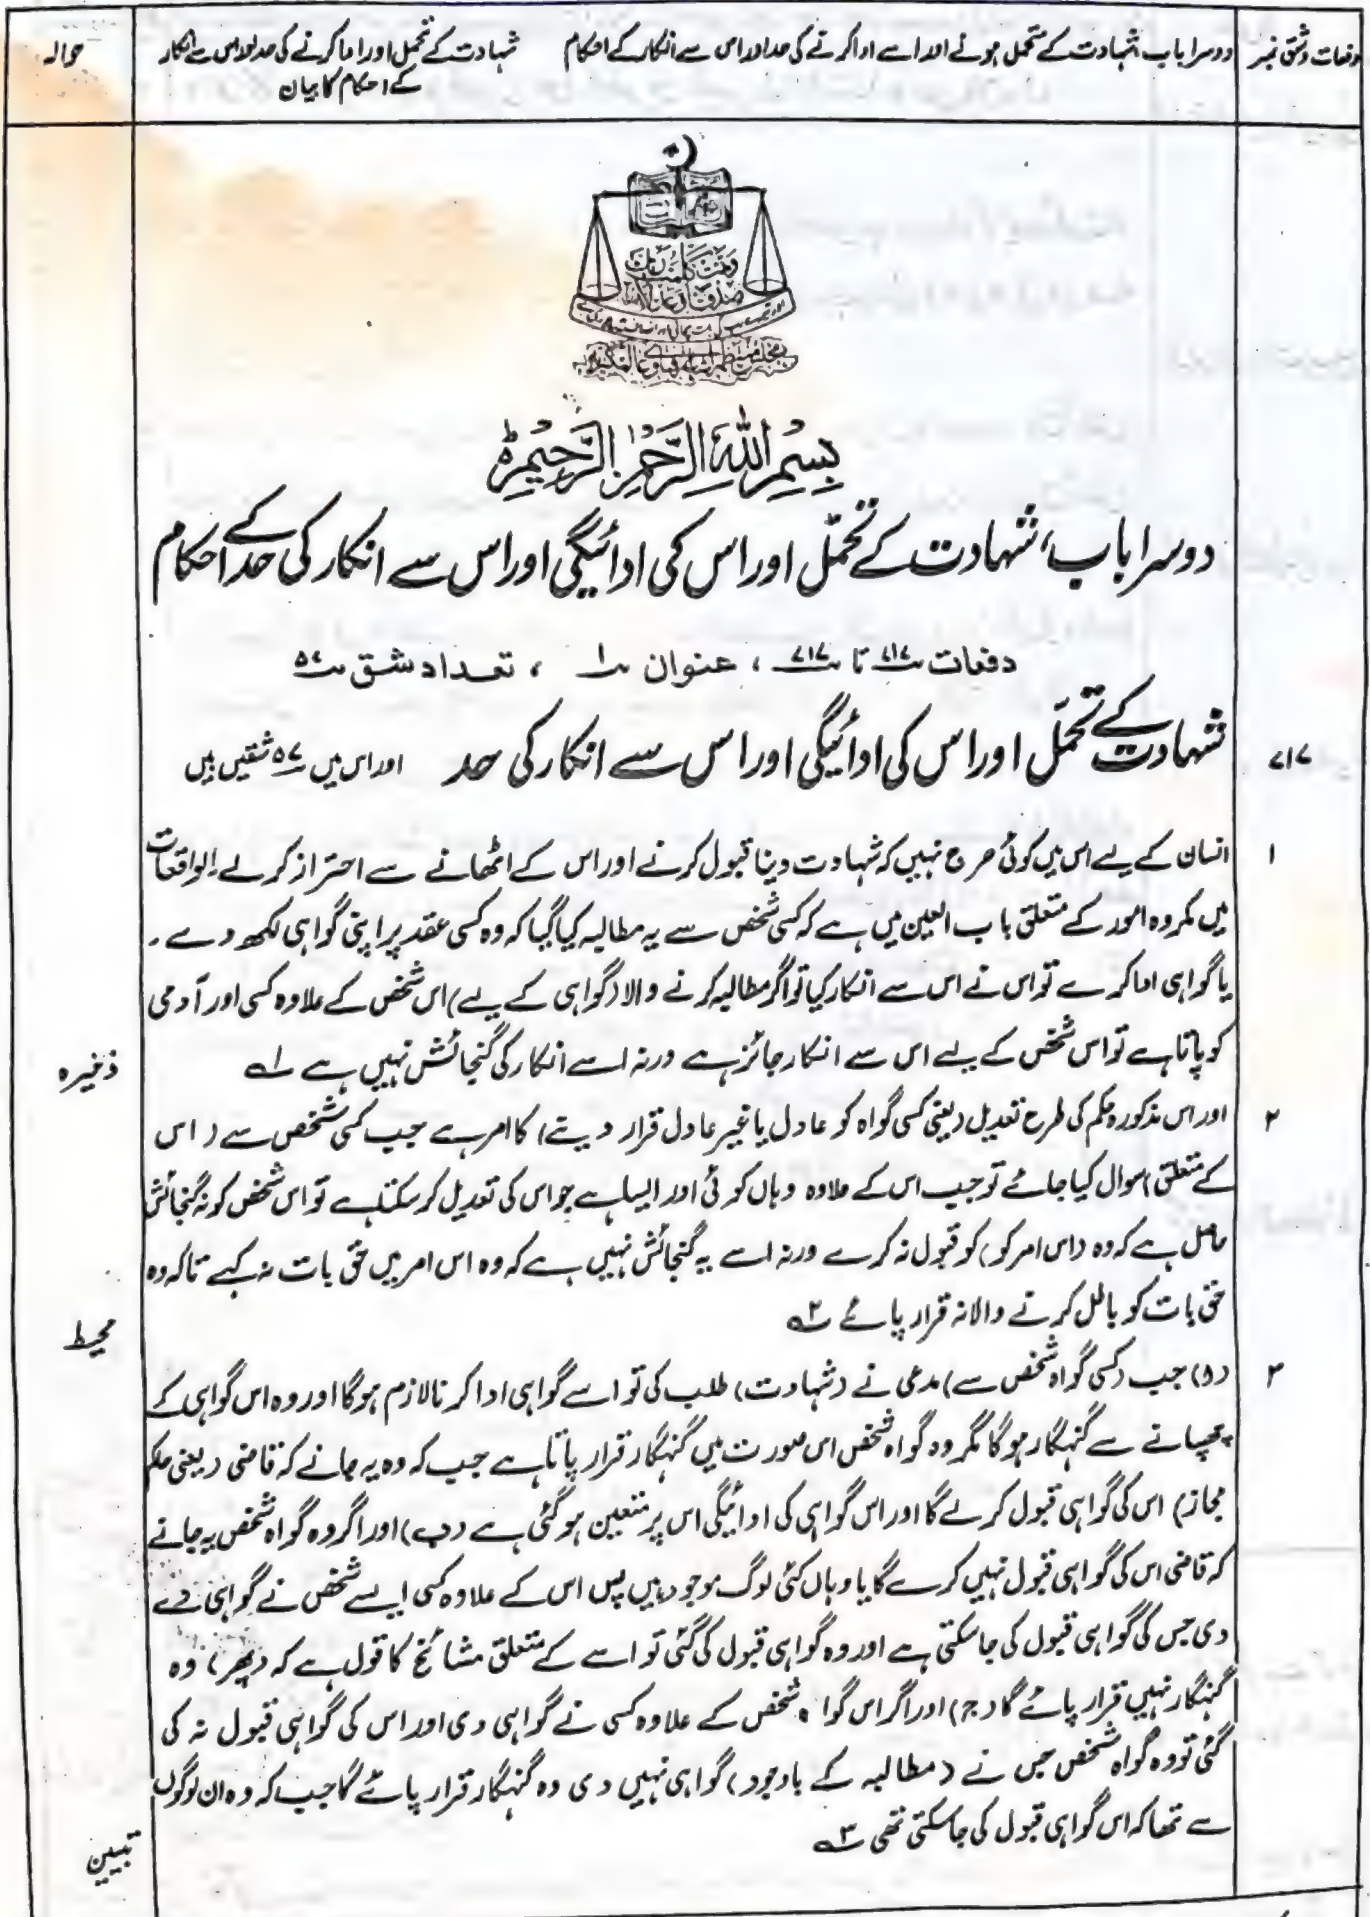 دفعات و شق نمبر
دوسرا باب، شہادت کے متحمل ہونے اور اسے ادا کرنے کی حد اور اس سے انکار کے احکام
شہادت کے تحمل اور ادا کرنے کی حد اور اس سے انکار
کے احکام کا بیان
حوالہ
وتمت کلمت ربک
صدقا وعدلا
بِسْمِ اللّٰهِ الرَّحْمٰنِ الرَّحِیْمِ ط
دوسرا باب، شہادت کے تحمّل اور اس کی ادائیگی اور اس سے انکار کی حد کے احکام
دفعات ۷۱۷ تا ۷۱۷ ، عنوان ۱ ، تعداد شق ۵۷
۷۱۷ شہادت کے تحمّل اور اس کی ادائیگی اور اس سے انکار کی حد اور اس میں ۵۷ شقیں ہیں
۱ انسان کے لیے اس میں کوئی حرج نہیں کہ شہادت دینا قبول کرنے اور اس کے اٹھانے سے احتراز کرلے۔ الواقعات
میں مکروہ امور کے متعلق باب العین میں ہے کہ کسی شخص سے یہ مطالبہ کیا گیا کہ وہ کسی عقد پر اپنی گواہی لکھ دے ۔
یا گواہی ادا کرے تو اس نے اس سے انکار کیا تو اگر مطالبہ کرنے والا (گواہی کے لیے) اس شخص کے علاوہ کسی اور آدمی
کو پاتا ہے تو اس شخص کے لیے اس سے انکار جائز ہے ورنہ اسے انکار کی گنجائش نہیں ہے ۱؎
ذخیرہ
۲ اور اس مذکورہ حکم کی طرح تعدیل (یعنی کسی گواہ کو عادل یا غیر عادل قرار دینے) کا امر ہے جب کسی شخص سے (اس
کے متعلق) سوال کیا جائے تو جب اس کے علاوہ وہاں کوئی اور ایسا ہے جو اس کی تعدیل کر سکتا ہے تو اس شخص کو یہ گنجائش
حاصل ہے کہ وہ (اس امر کو) کو قبول نہ کرے ورنہ اسے یہ گنجائش نہیں ہے کہ وہ اس امر میں حق بات نہ کہے تاکہ وہ
حق بات کو باطل کرنے والا نہ قرار پائے ۲؎
محیط
۳ (ا) جب (کسی گواہ شخص سے) مدعی نے (شہادت) طلب کی تو اسے گواہی ادا کرنا لازم ہوگا اور وہ اس گواہی کے
چھپانے سے گنہگار ہوگا مگر وہ گواہ شخص اس صورت میں گنہگار قرار پاتا ہے جب کہ وہ یہ جانے کہ قاضی (یعنی حاکم
مجاز) اس کی گواہی قبول کرلے گا اور اس گواہی کی ادائیگی اس پر متعین ہوگئی ہے (ب) اور اگر وہ گواہ شخص یہ جانے
کہ قاضی اس کی گواہی قبول نہیں کرے گا یا وہاں کئی لوگ موجود ہیں پس اس کے علاوہ کسی ایسے شخص نے گواہی دے
دی جس کی گواہی قبول کی جاسکتی ہے اور وہ گواہی قبول کی گئی تو اسے کے متعلق مشائخ کا قول ہے کہ (پھر) وہ
گنہگار نہیں قرار پائے گا (ج) اور اگر اس گواہ شخص کے علاوہ کسی نے گواہی دی اور اس کی گواہی قبول نہ کی
گئی تو وہ گواہ شخص جس نے (مطالبہ کے باوجود) گواہی نہیں دی وہ گنہگار قرار پائے گا جب کہ وہ ان لوگوں
سے تھا کہ اس گواہی قبول کی جاسکتی تھی ۳؎
تبیین